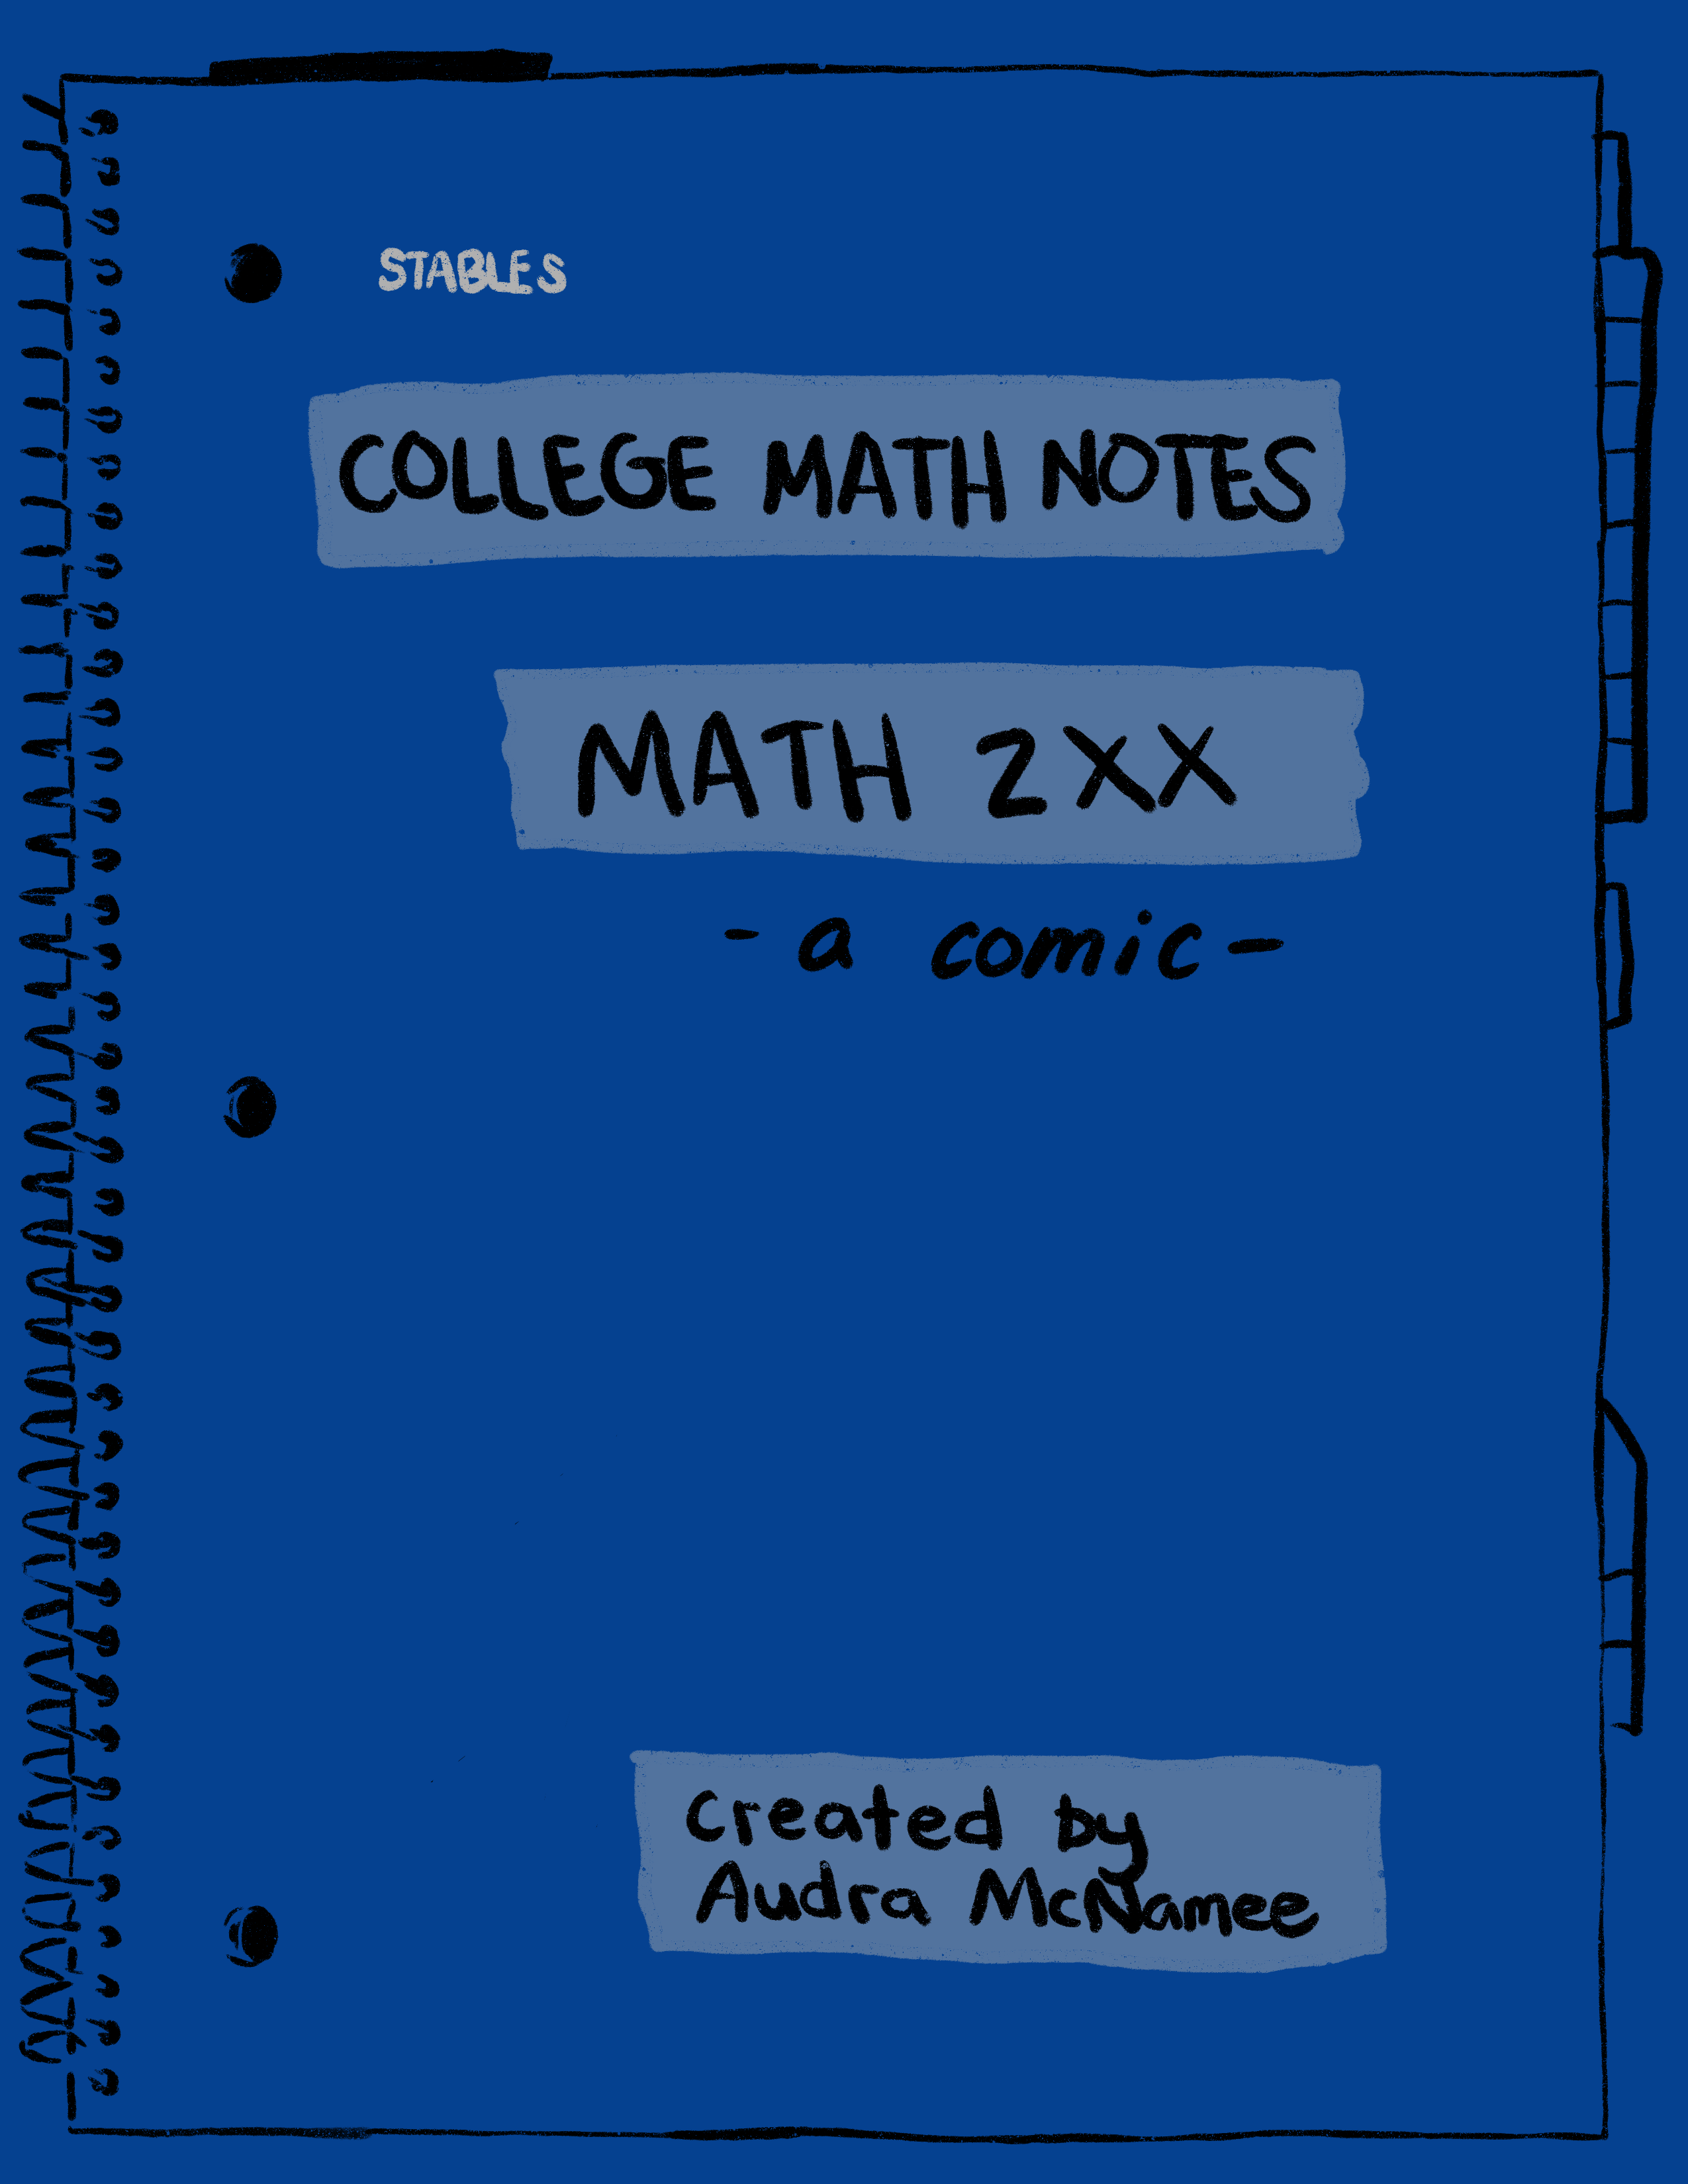 STABLES
COLLEGE MATH NOTES
MATH 2XX
- a comic -
created by
Audra McNamee